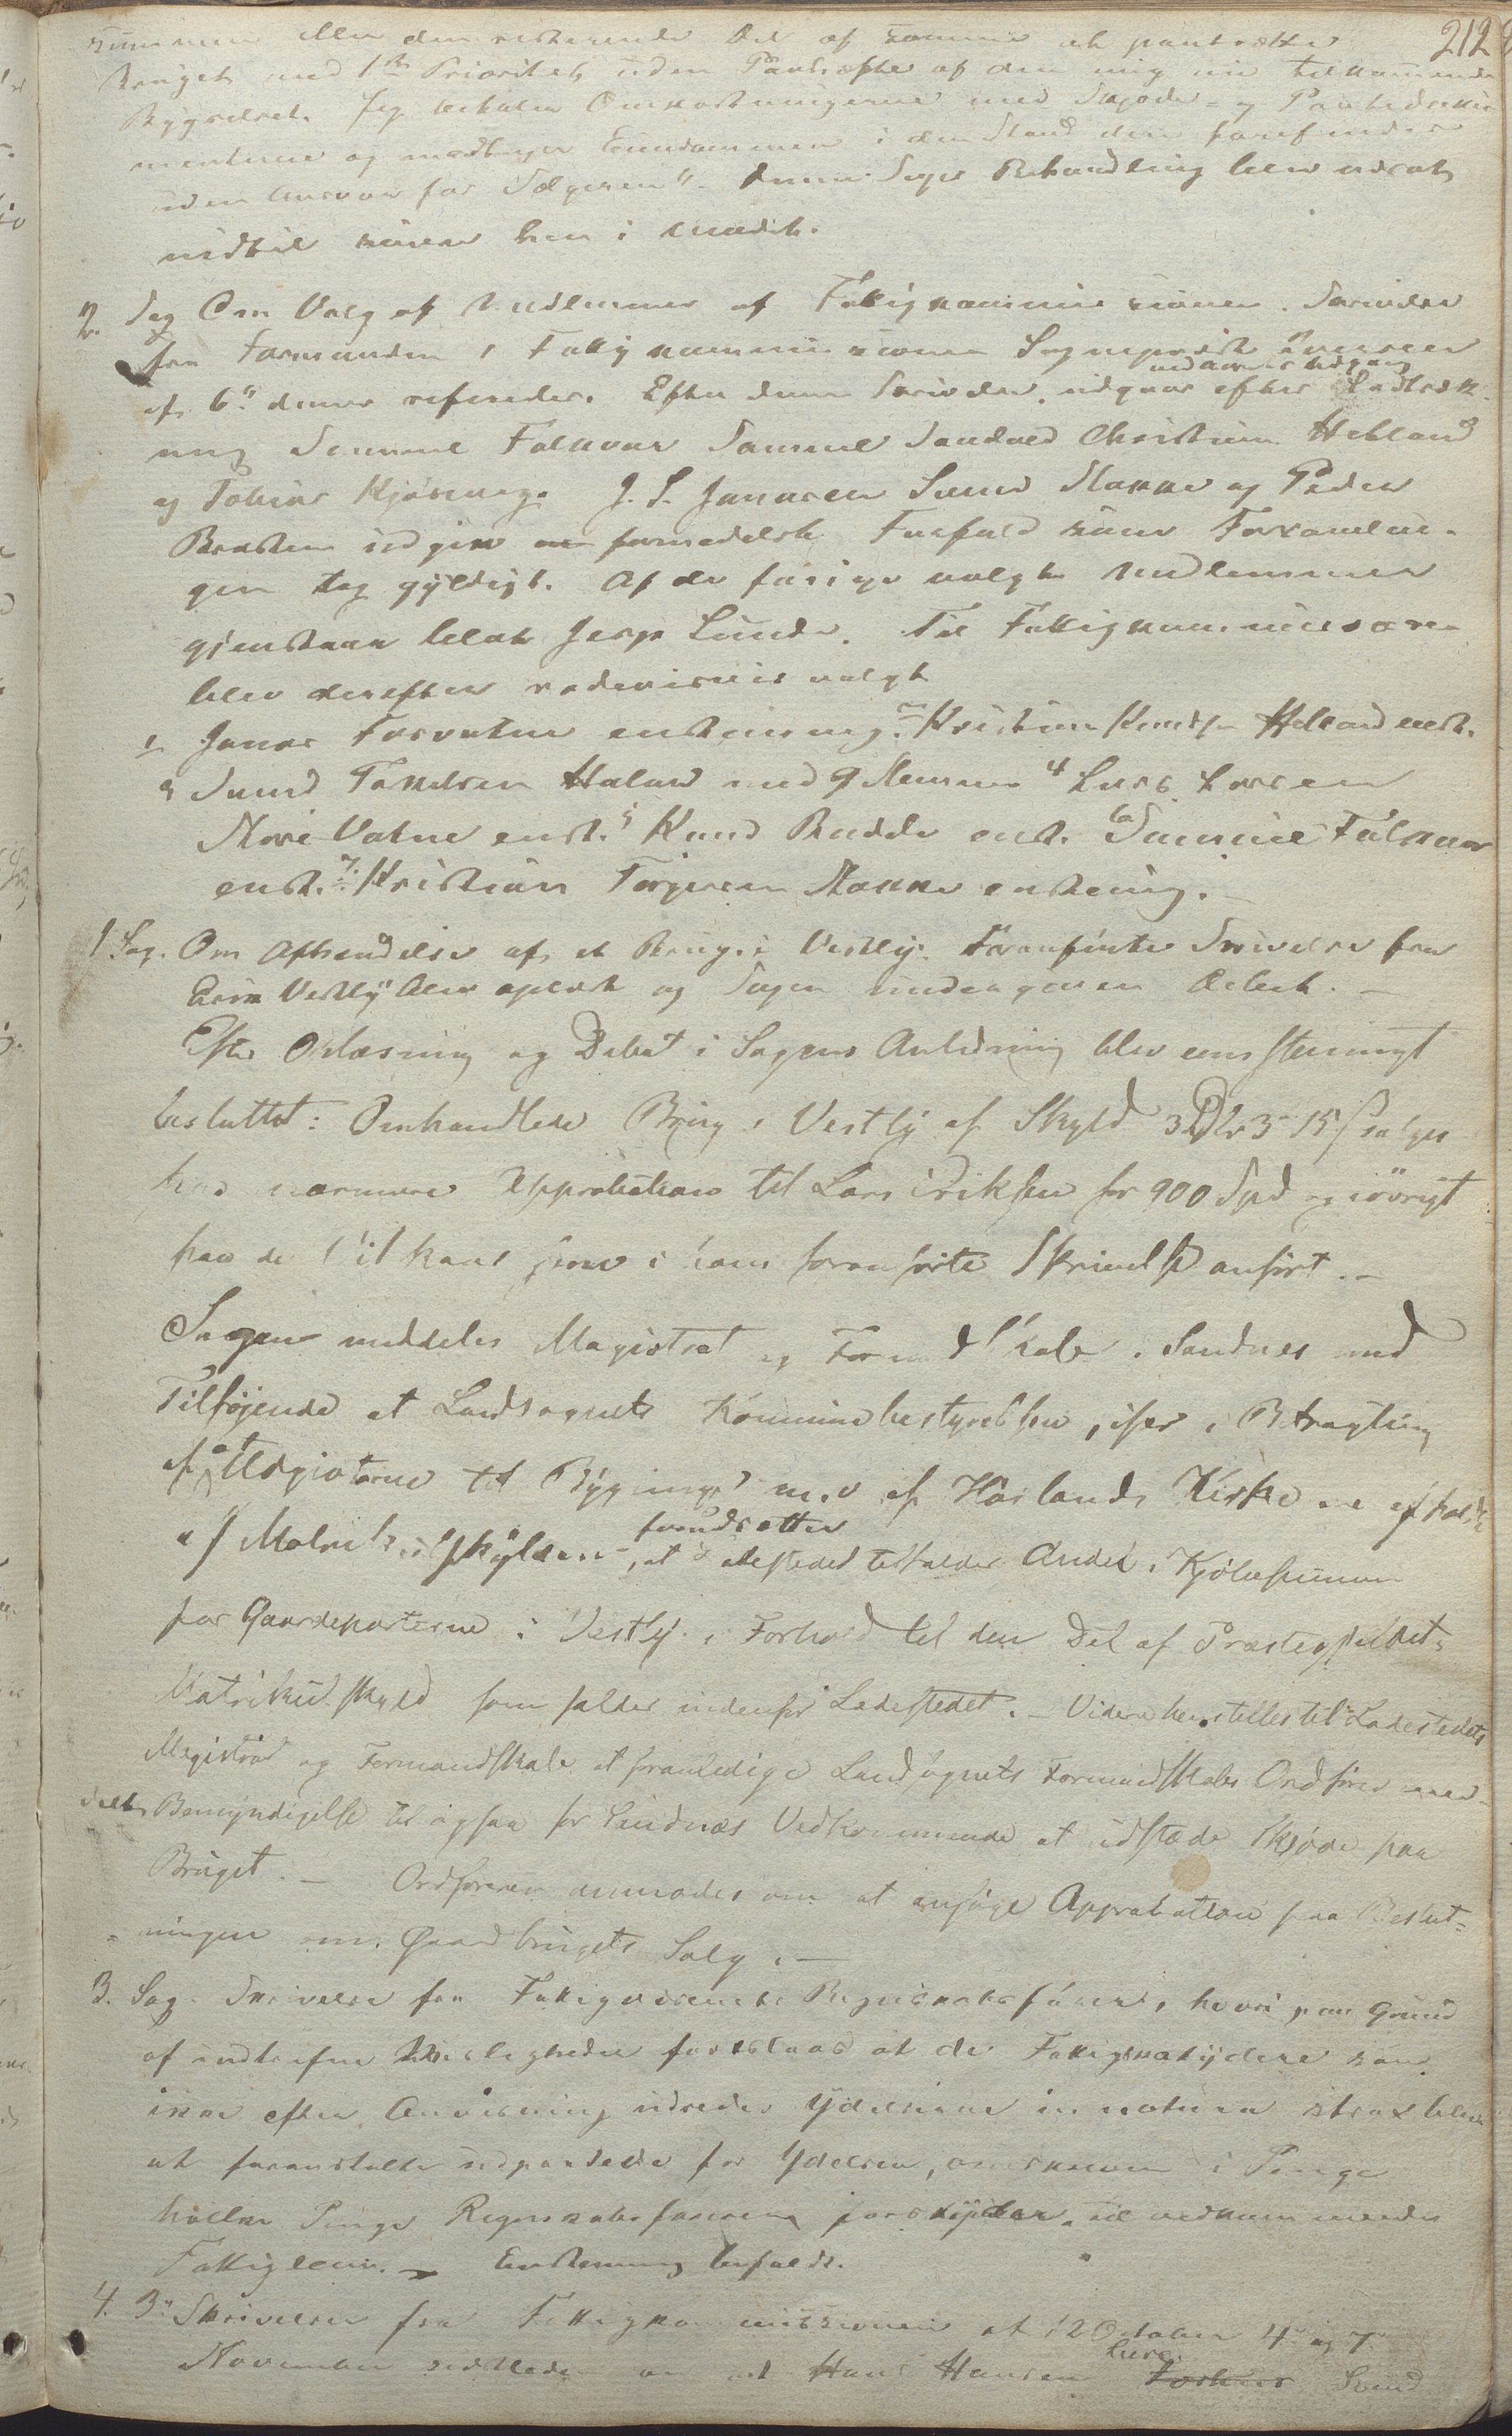 212
summen eller den resterende Del af samme at pantsætte
Bruget med 1ste Prioritet uden Panhefte af den mig nu tilkommende
Bygselret. Jeg betaler Omkostningerne med Skjøde- og Pantedoku
menterne og modtager Eiendommen i den Stand den forefindes
uden Ansvar for Sælgeren". Denne Sags Behandling blev udsat
indtil videre hen i Mødet.
2. Sag Om Valg af Medlemmer af Fattigkommissionen. Skrivelse
fra Formanden i Fattigkommissionen Sogneprest
af 6te dennes refereredes. Efter denne Skrivelse udgaar efter Lodtræk-
ved Aarets Udgang
ning Samuel Folkvor Samuel Sandved Christian Hetland
og Tobias Kjösnæg. J. S. Jonassen Svend Stokke og Peder
Bersten udgik formedelst Forfald som Forsamlin-
gen tog gyldigt. Af de forrige valgte Medlemmer
gjenstaar blot Jesp Lunde. Til Fattigkommissærer
blev derefter rodevisviis valgt
1 Jonas Forvatne enstemmig. 2 Kristian Knudsen Hetland enst.
3 Svend Torkelsen Haland med 9 Stemmer 4 Lars Larsen
Novi Vatne enst. 5 Knud Bedde enst. 6 Samuel Folkvor
enst. 7. Kristian Torgersen Stokke enstemig.
1. Sag. Om Afhændelse af et Brug i Vestly. Foranførte Skrivelse fra
Eirik Vestly blev oplæst og Sagen undergiven Debat. —
Efter Oplæsning og Debat i Sagens Anledning blev eenstemmigt
besluttet: Omhandlede Brug i Vestly af Skyld 3 Dlr 3 - 15 ß sælges
paa nærmere Approbation til Lars Eriksen for 900 Spd og iövrigt
paa de Vilkaar som i hans foranførte Skrivelse anført. —
Sagen meddeles Magistrat og Formandskab i Sandnes med
Tilföjende at Landsognets Kommunebestyrelse, især i Betragtning
af at Udgivterne til Bygning m.v af Höilands Kirke er afholdt
af Matrikulskylden, forudsætter at Ladestedet tilfalder Andel i Kjöbesummen
for Gaardeparterne i Vestly i Forhold til den Del af Præstegjeldets
Matrikulskyld som falder indenfor Ladestedet. — Videre henstilles til Ladestedets
Magistrat og Formandskab at foranledige Landsognets Formandskabs Ordförer med-
delt Bemyndigelse til ogsaa for Sandnæs Vedkommende at udstæde Skjöde paa
Bruget. — Ordföreren anmodes om at ansöge Approbation paa Beslut-
ningen om Gaardbrugets Salg. —
3. Sag. Skrivelse fra Fattigvæsenets Regnskabsförer, hvori paa Grund
af indtrufne Misligheder foreslaaes at de Fattigskatydere som
ikke efter Anvisning udreder Ydelserne in natura strax bliver
at foranstalte udpantede for Ydelsen, omskreven i Penge
hvilke Penge Regnskabsföreren forskyder til vedkommende
Fattiglem. — Enstemmig bifaldt.
4. 3de Skrivelser fra Fattigkommissionen af 12 October 4de og 7
November sidstleden om at Hans Hansen Lura Svend